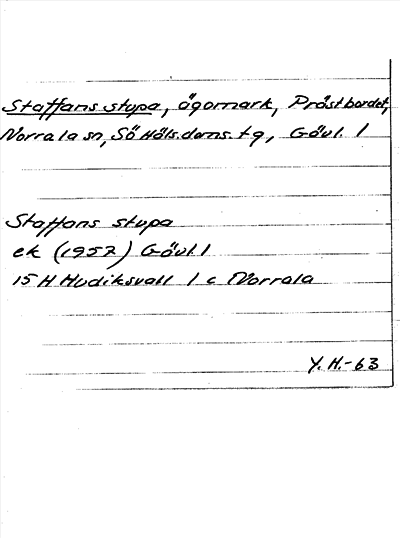 Staffans stupa, ägomark, Prästbordet,
Norrala sn, Sö Häls.doms. tg, Gävl. l
Staffans stupa
ek (1957) Gävl. l
15 H Hudiksvall 1 c Norrala
Y. H.-63